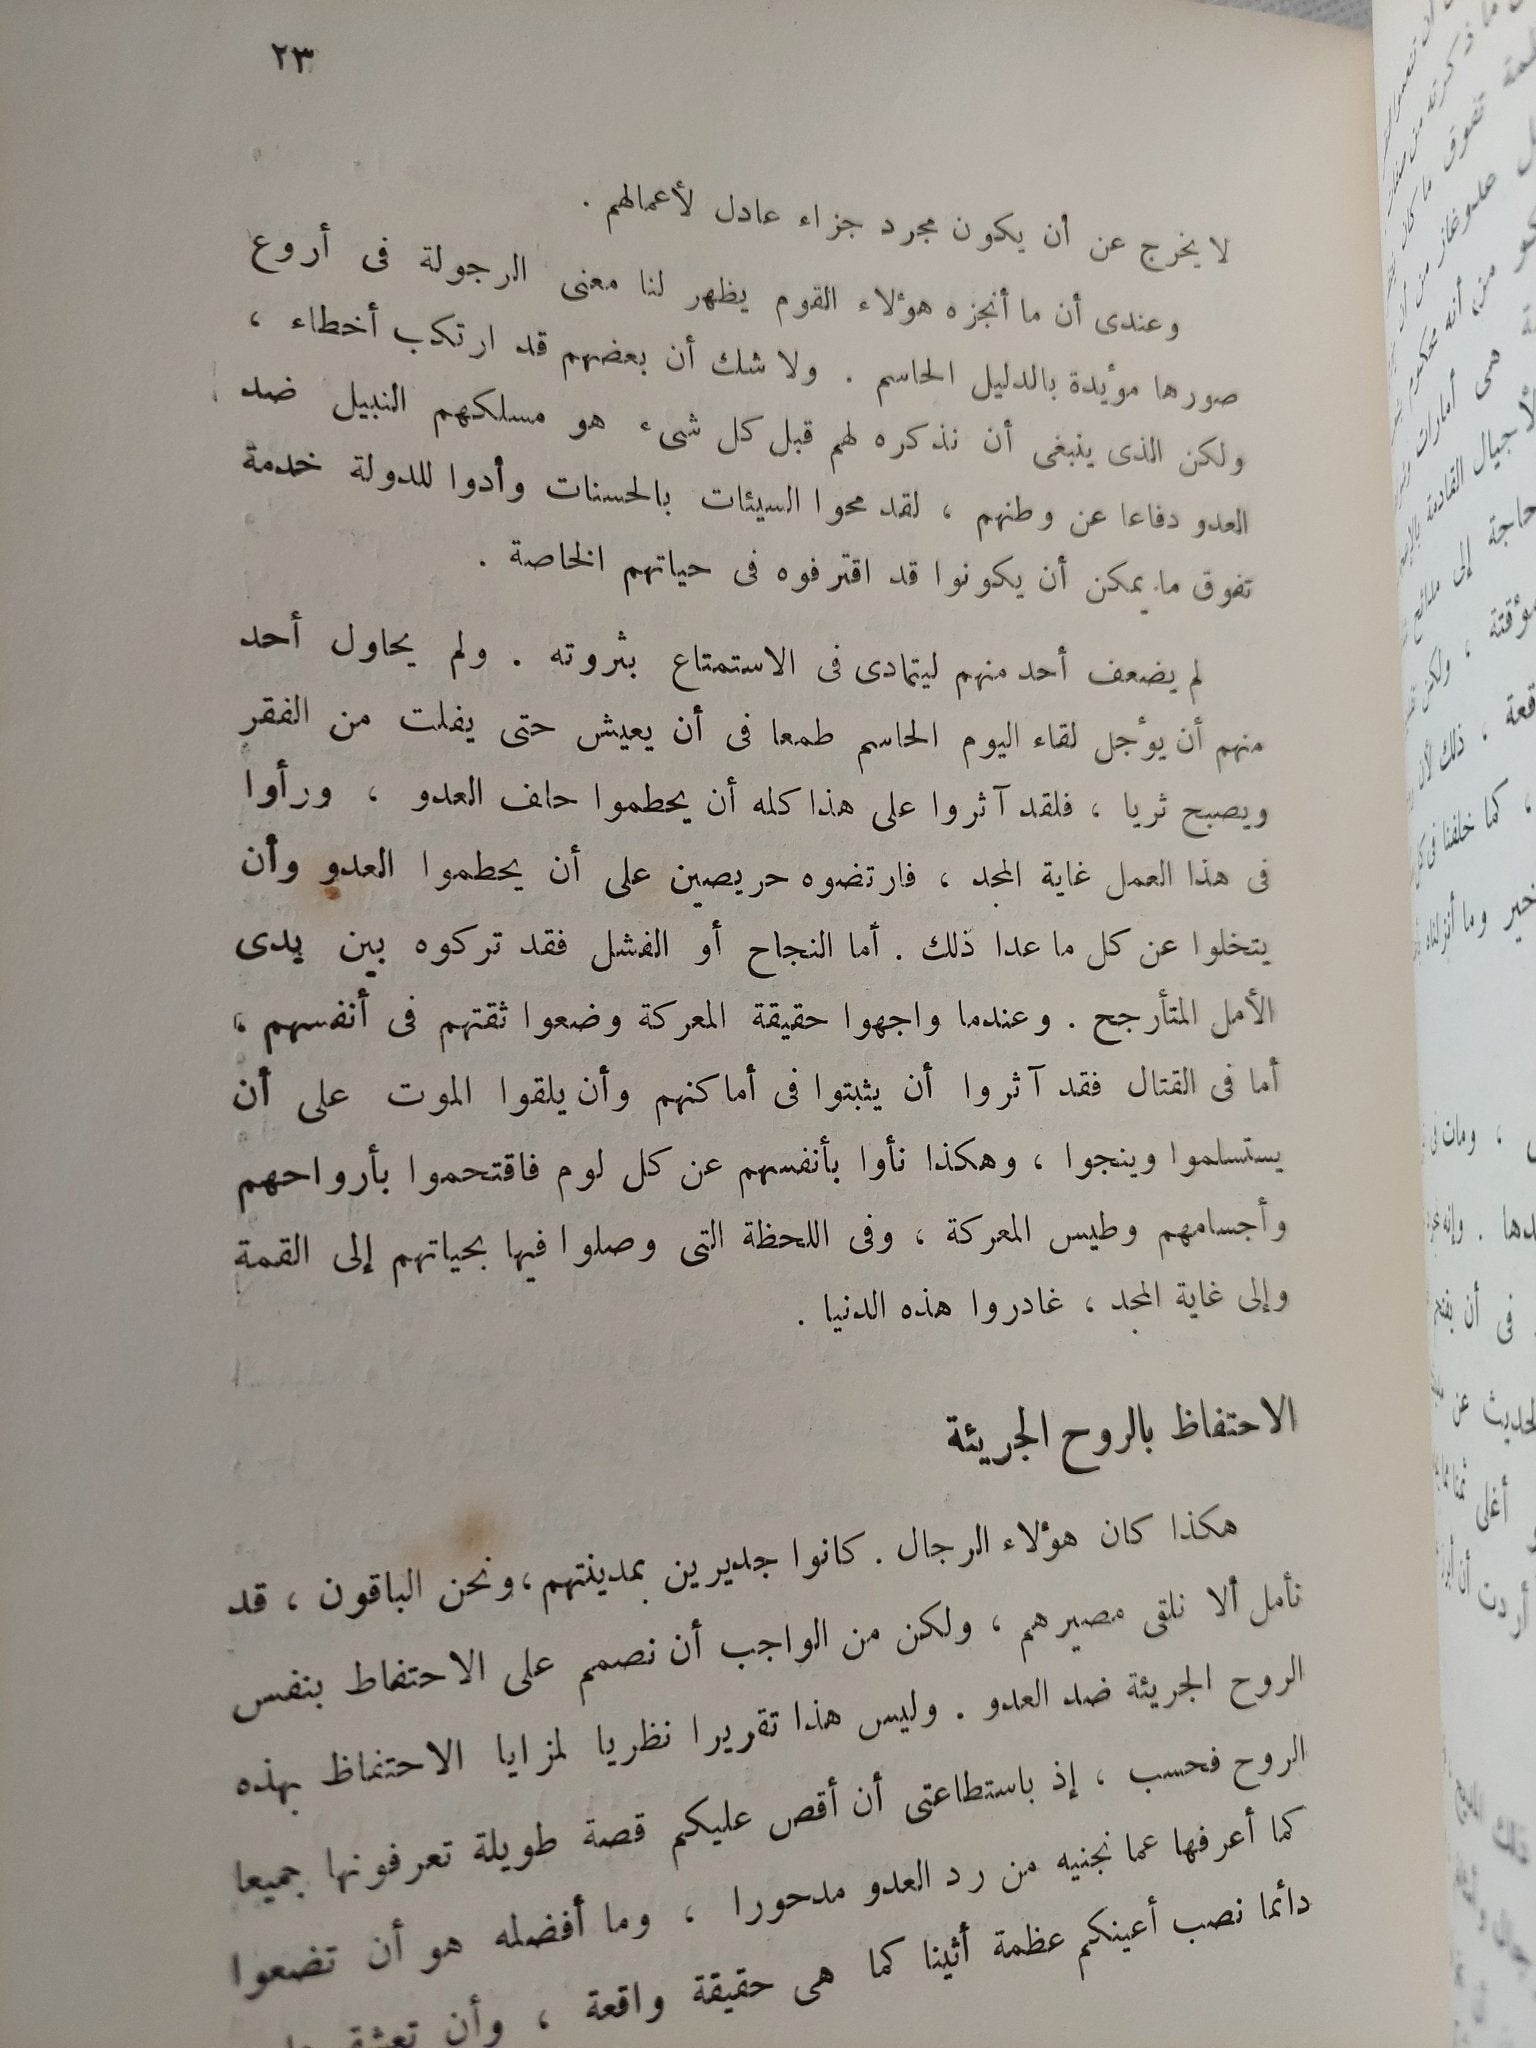 ٢٣
لا يخرج عن أن يكون مجرد جزاء عادل لأعمالهم .
وعندى أن ما أنجزه هؤلاء القوم يظهر لنا معنى الرجولة فى أروع
صورها مؤيدة بالدليل الحاسم . ولا شك أن بعضهم قد ارتكب أخطاء ،
ولكن الذى ينبغى أن نذكره لهم قبل كل شىء هو مسلكهم النبيل ضد
العدو دفاعا عن وطنهم ، لقد محوا السيئات بالحسنات وأدوا للدولة خدمة
تفوق ما يمكن أن يكونوا قد اقترفوه فى حياتهم الخاصة .
لم يضعف أحد منهم ليتمادى فى الاستمتاع بثروته . ولم يحاول أحد
منهم أن يؤجل لقاء اليوم الحاسم طمعا فى أن يعيش حتى يفلت من الفقر
ويصبح ثريا ، فلقد آثروا على هذا كله أن يحطموا حلف العدو ، ورأوا
فى هذا العمل غاية المجد ، فارتضوه حريصين على أن يحطموا العدو وأن
يتخلوا عن كل ما عدا ذلك . أما النجاح أو الفشل فقد تركوه بين يدى
الأمل المتأرجح . وعندما واجهوا حقيقة المعركة وضعوا ثقتهم فى أنفسهم ،
أما فى القتال فقد آثروا أن يثبتوا فى أماكنهم وأن يلقوا الموت على أن
يستسلموا وينجوا ، وهكذا نأوا بأنفسهم عن كل لوم فاقتحموا بأرواحهم
وأجسامهم وطيس المعركة ، وفى اللحظة التى وصلوا فيها بحياتهم إلى القمة
وإلى غاية المجد ، غادروا هذه الدنيا .
الاحتفاظ بالروح الجريئة
هكذا كان هؤلاء الرجال . كانوا جديرين بمدينتهم ، ونحن الباقون ، قد
نأمل ألا نلقى مصيرهم ، ولكن من الواجب أن نصمم على الاحتفاظ بنفس
الروح الجريئة ضد العدو . وليس هذا تقريرا نظريا لمزايا الاحتفاظ بهذه
الروح فحسب ، إذ باستطاعتى أن أقص عليكم قصة طويلة تعرفونها جميعا
كما أعرفها عما نجنيه من رد العدو مدحورا ، وما أفضله هو أن تضعوا
دائما نصب أعينكم عظمة أثينا كما هى حقيقة واقعة ، وأن